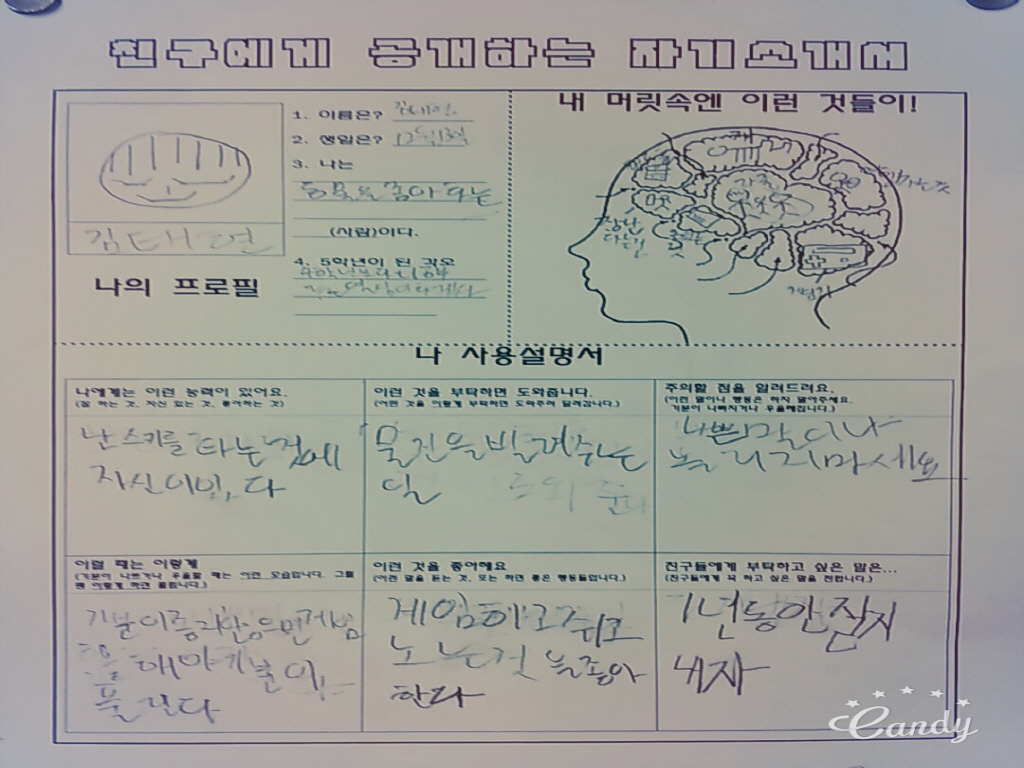 친구에게 공개하는 자기소개서
1. 이름은?
2. 생일은?
3. 나는
동물을 좋아하는
(사람)이다.
4. 5학년이 된 각오
김태연
나의 프로필
내 머릿속엔 이런 것들이!
가족
나 사용설명서
나에게는 이런 능력이 있어요.
(잘 하는 것, 자신 있는 것, 좋아하는 것)
난 스키를 타는 것에
자신이있다
이런 것을 부탁하면 도와줍니다.
(이런 것을 이렇게 부탁하면 도와주러 달려갑니다.)
물건을 빌려주는
일
주의할 점을 알려드려요.
(이런 말이나 행동은 하지 말아주세요.
기분이 나빠지거나 우울해집니다.)
나쁜말이나
놀리지마세요
이럴 때는 이렇게
(기분이 나쁘거나 우울할 때는 이런 모습입니다. 그럴
땐 이렇게 하면 풀립니다.)
기분이 좋지않으면 게임
을 해야 기분이
풀린다
이런 것을 좋아해요
(이런 말을 듣는 것, 또는 하면 좋은 행동들입니다.)
게임하고 쉬고
노는것을 좋아
한다
친구들에게 부탁하고 싶은 말은...
(친구들에게 꼭 하고 싶은 말을 전합니다.)
1년동안 잘지
내자
Candy